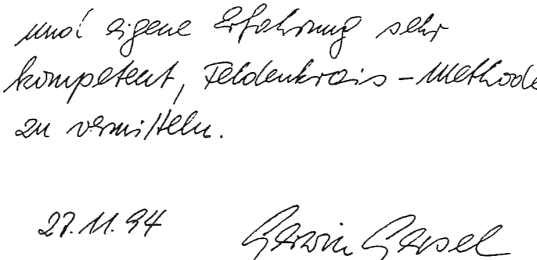 und eigene Erfahrung sehr
kompetent, Feldenkrais-Methode
zu vermitteln.
27.11.94